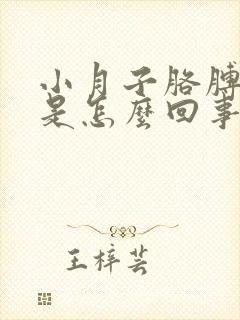 小月子胳膊
是怎麼回事
王梓芸